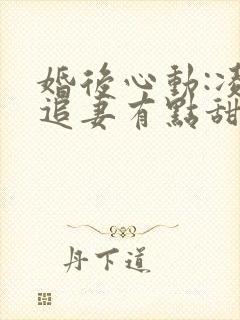 婚後心動:凌
追妻有點甜
丹下道